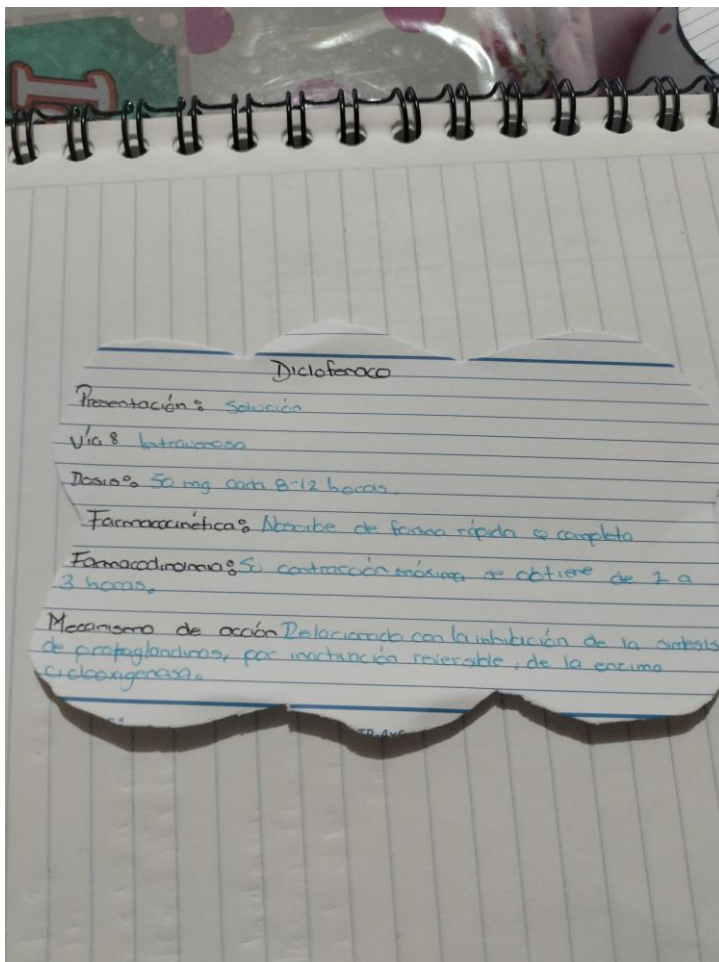 Diclofenaco
Presentación: Solución
Vía: Intravenosa
Dosis: 50 mg cada 8-12 horas.
Farmacocinética: Absorbe de forma rápida y completa
Farmacodinamia: Su contracción máxima se obtiene de 2 a
3 horas.
Mecanismo de acción Relacionado con la inhibición de la sintesis
de protaglandinas, por inactivación reversible, de la enzima
ciclooxigenasa.